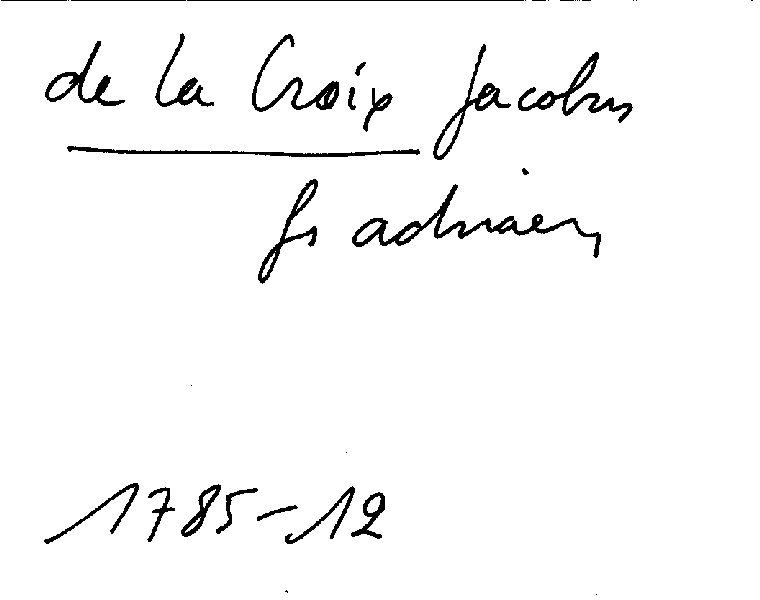 de la Croix Jacobus
fs adriaen
1785-12